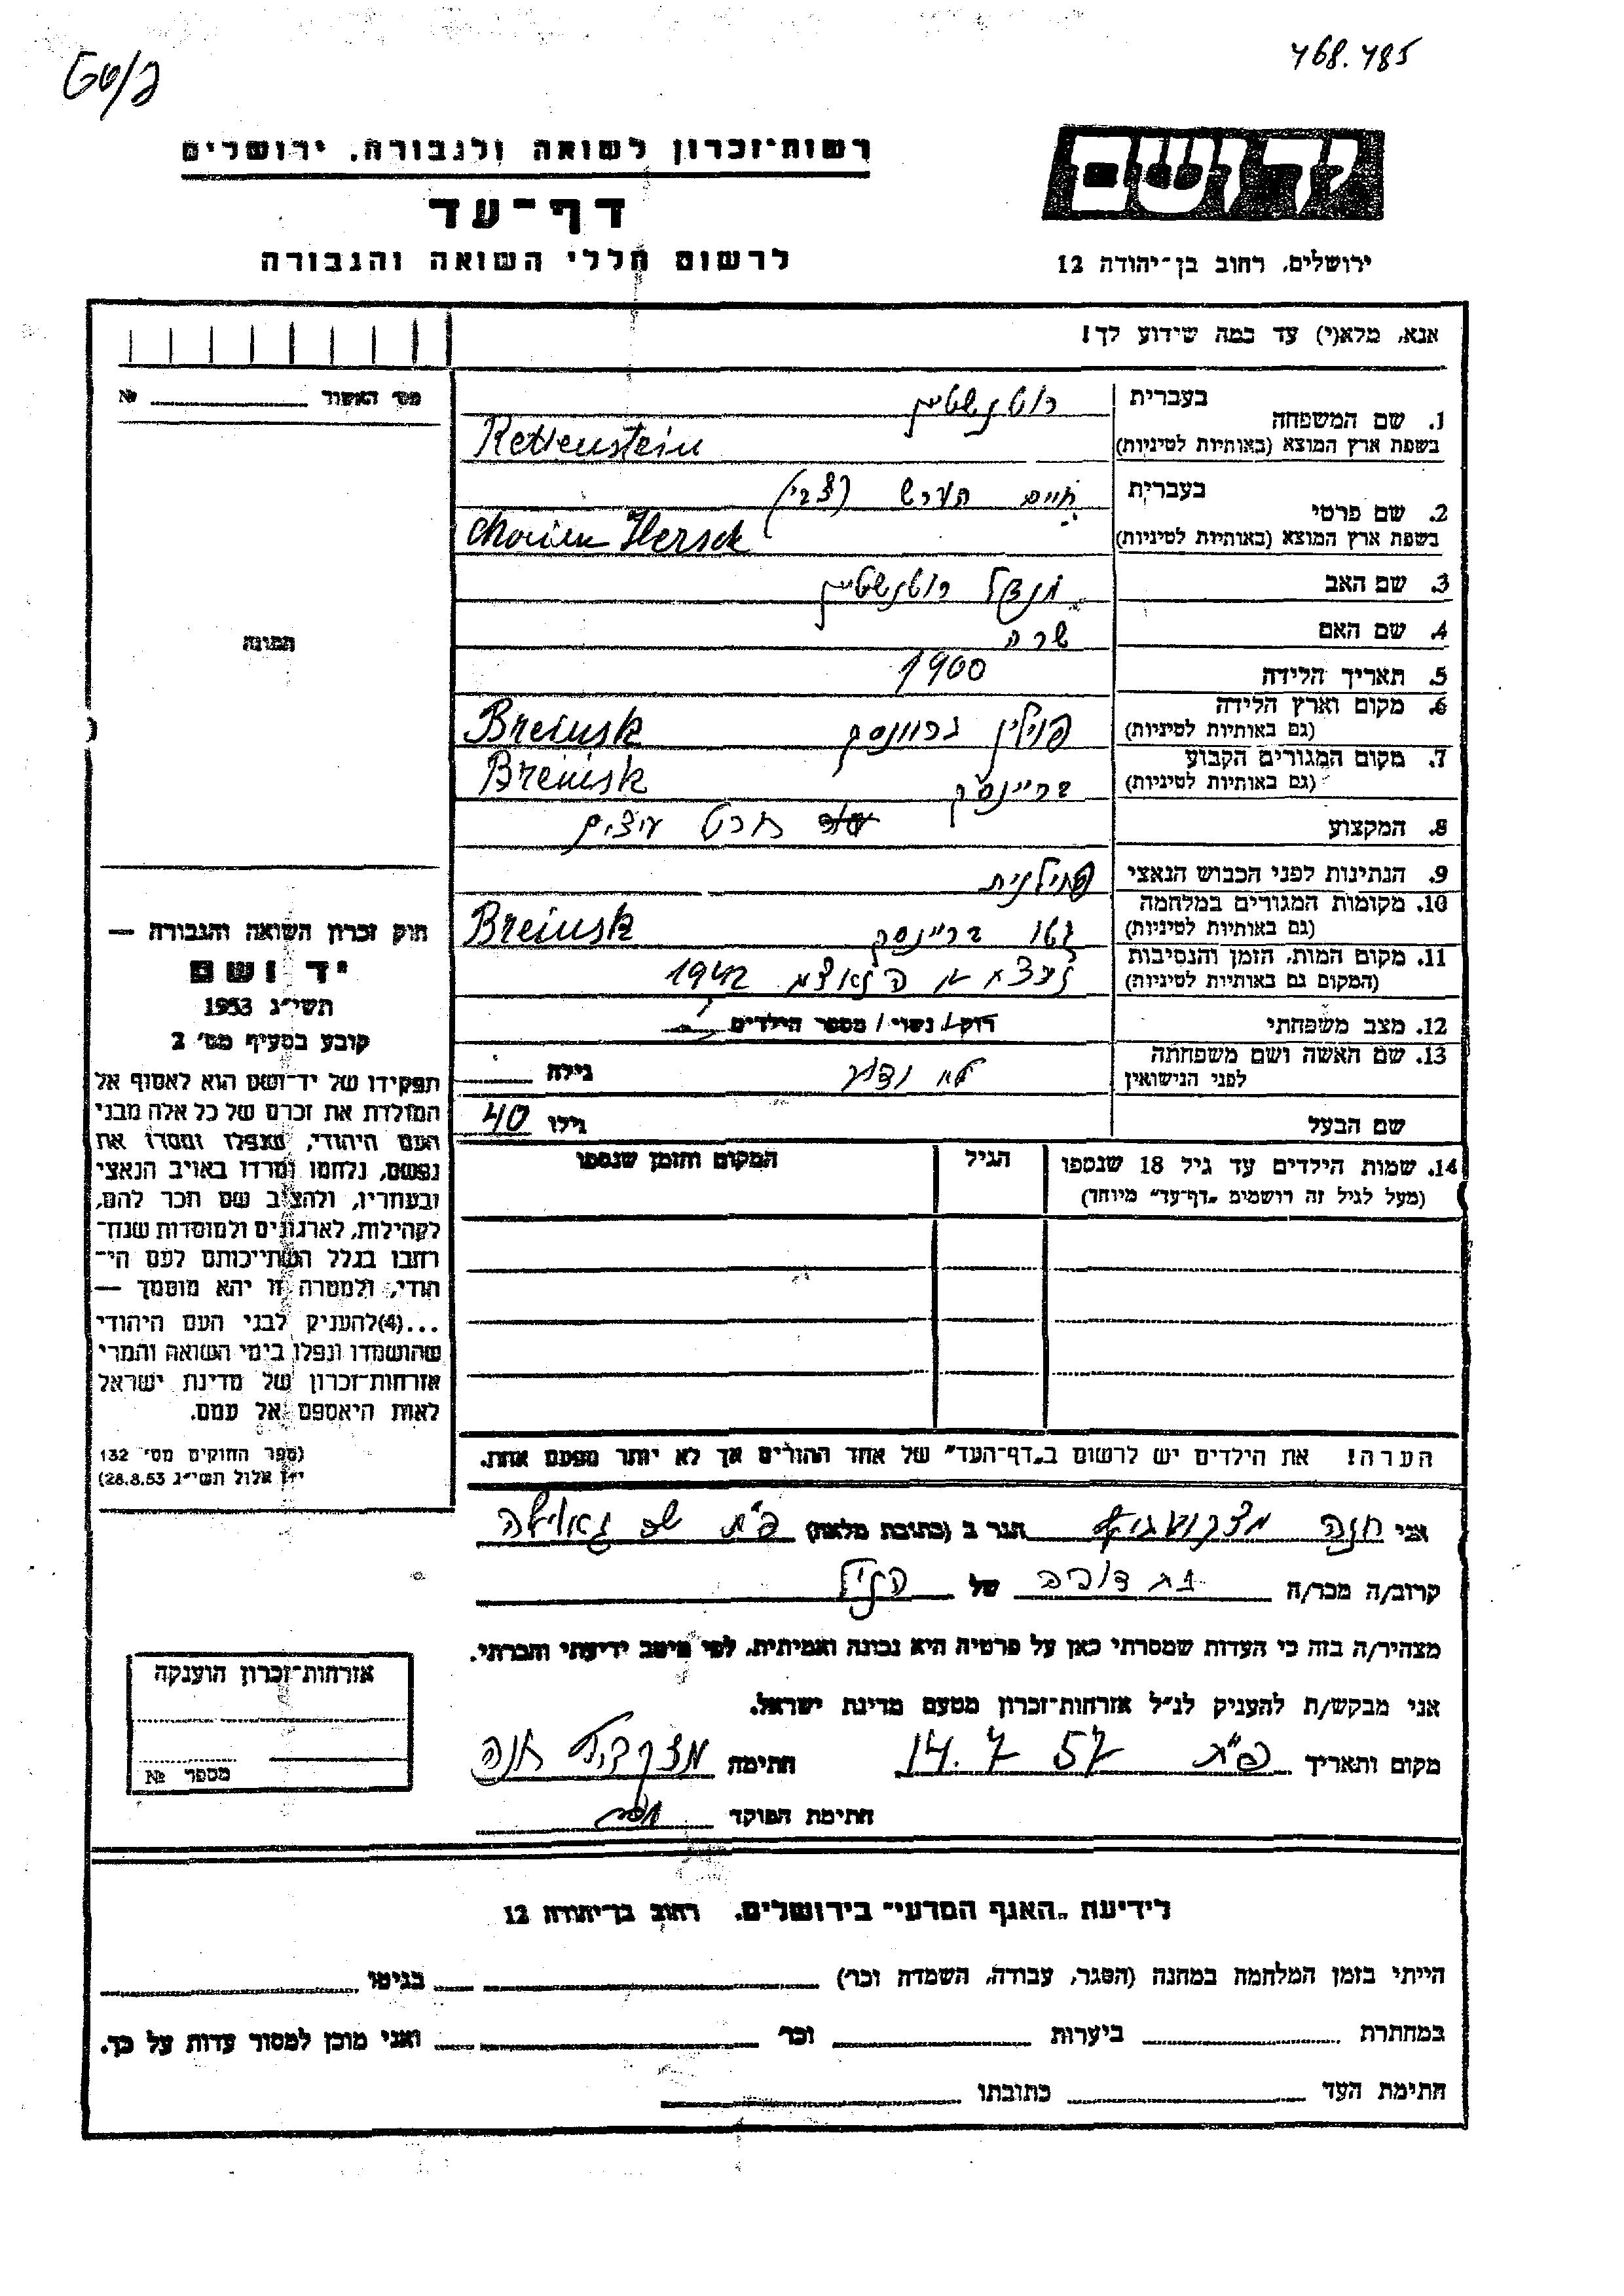 468.485
רשות־זכרון לשואה ולגבורה, ירושלים
דף־עד
לרשום חללי השואה והגבורה
יד ושם
ירושלים, רחוב בן־יהודה 12
אנא, מלא(י) עד כמה שידוע לך!
מס' האשור №
1. שם המשפחה בעברית רוטנשטיין
בשפת ארץ המוצא (באותיות לטיניות) Rettenstein
2. שם פרטי בעברית חיים הערש (צבי)
בשפת ארץ המוצא (באותיות לטיניות) Hersch
3. שם האב מנדל רוטנשטיין
4. שם האם שרה
5. תאריך הלידה 1900
6. מקום וארץ הלידה
(גם באותיות לטיניות) פולין Breiusk
7. מקום המגורים הקבוע
(גם באותיות לטיניות) בריינסק Breiisk
8. המקצוע חרט עיצים
9. הנתינות לפני הכבוש הנאצי פוילנית
10. מקומות המגורים במלחמה
(גם באותיות לטיניות) גטו בריינסק Breiusk
11. מקום המות, הזמן והנסיבות
(המקום גם באותיות לטיניות) 1942
12. מצב משפחתי רוק/ נשוי/ מספר הילדים
13. שם האשה ושם משפחתה
לפני הנישואין לא ידוע גילה
שם הבעל גילו 40
14. שמות הילדים עד גיל 18 שנספו הגיל המקום והזמן שנספו
(מעל לגיל זה רושמים „דף־עד" מיוחד)
הערה! את הילדים יש לרשום ב„דף־העד" של אחד ההורים אך לא יותר מפעם אחת.
תמונה
חוק זכרון השואה והגבורה —
יד ושם
תשי"ג 1953
קובע בסעיף מס' 2
תפקידו של יד־ושם הוא לאסוף אל
המולדת את זכרם של כל אלה מבני
העם היהודי, שנפלו ומסרו את
נפשם, נלחמו ומרדו באויב הנאצי
ובעוזריו, ולהציב שם וזכר להם,
לקהילות, לארגונים ולמוסדות שנח־
רבו בגלל השתייכותם לעם הי־
הודי, ולמטרה זו יהא מוסמך —
...(4)להעניק לבני העם היהודי
שהושמדו ונפלו בימי השואה והמרי
אזרחות־זכרון של מדינת ישראל
לאות היאספם אל עמם.
(ספר החוקים מס' 132
י"ז אלול תשי"ג 28.8.53)
אני חנה הגר ב (כתובת מלאה) פ"ת
קרוב/ה מכר/ה בת דודה של הנ"ל
מצהיר/ה בזה כי העדות שמסרתי כאן על פרטיה היא נכונה ואמיתית, לפי מיטב ידיעתי והכרתי.
אני מבקש/ת להעניק לנ"ל אזרחות־זכרון מטעם מדינת ישראל.
מקום ותאריך פ"ת 14.7 57 חתימה חנה
חתימת הפוקד
אזרחות־זכרון הוענקה
מספר №
לידיעת „האגף המדעי" בירושלים, רחוב בן־יהודה 12
הייתי בזמן המלחמה במחנה (הסגר, עבודה, השמדה וכו') בגיטו
במחתרת ביערות וכו' ואני מוכן למסור עדות על כך.
חתימת העד כתובתו